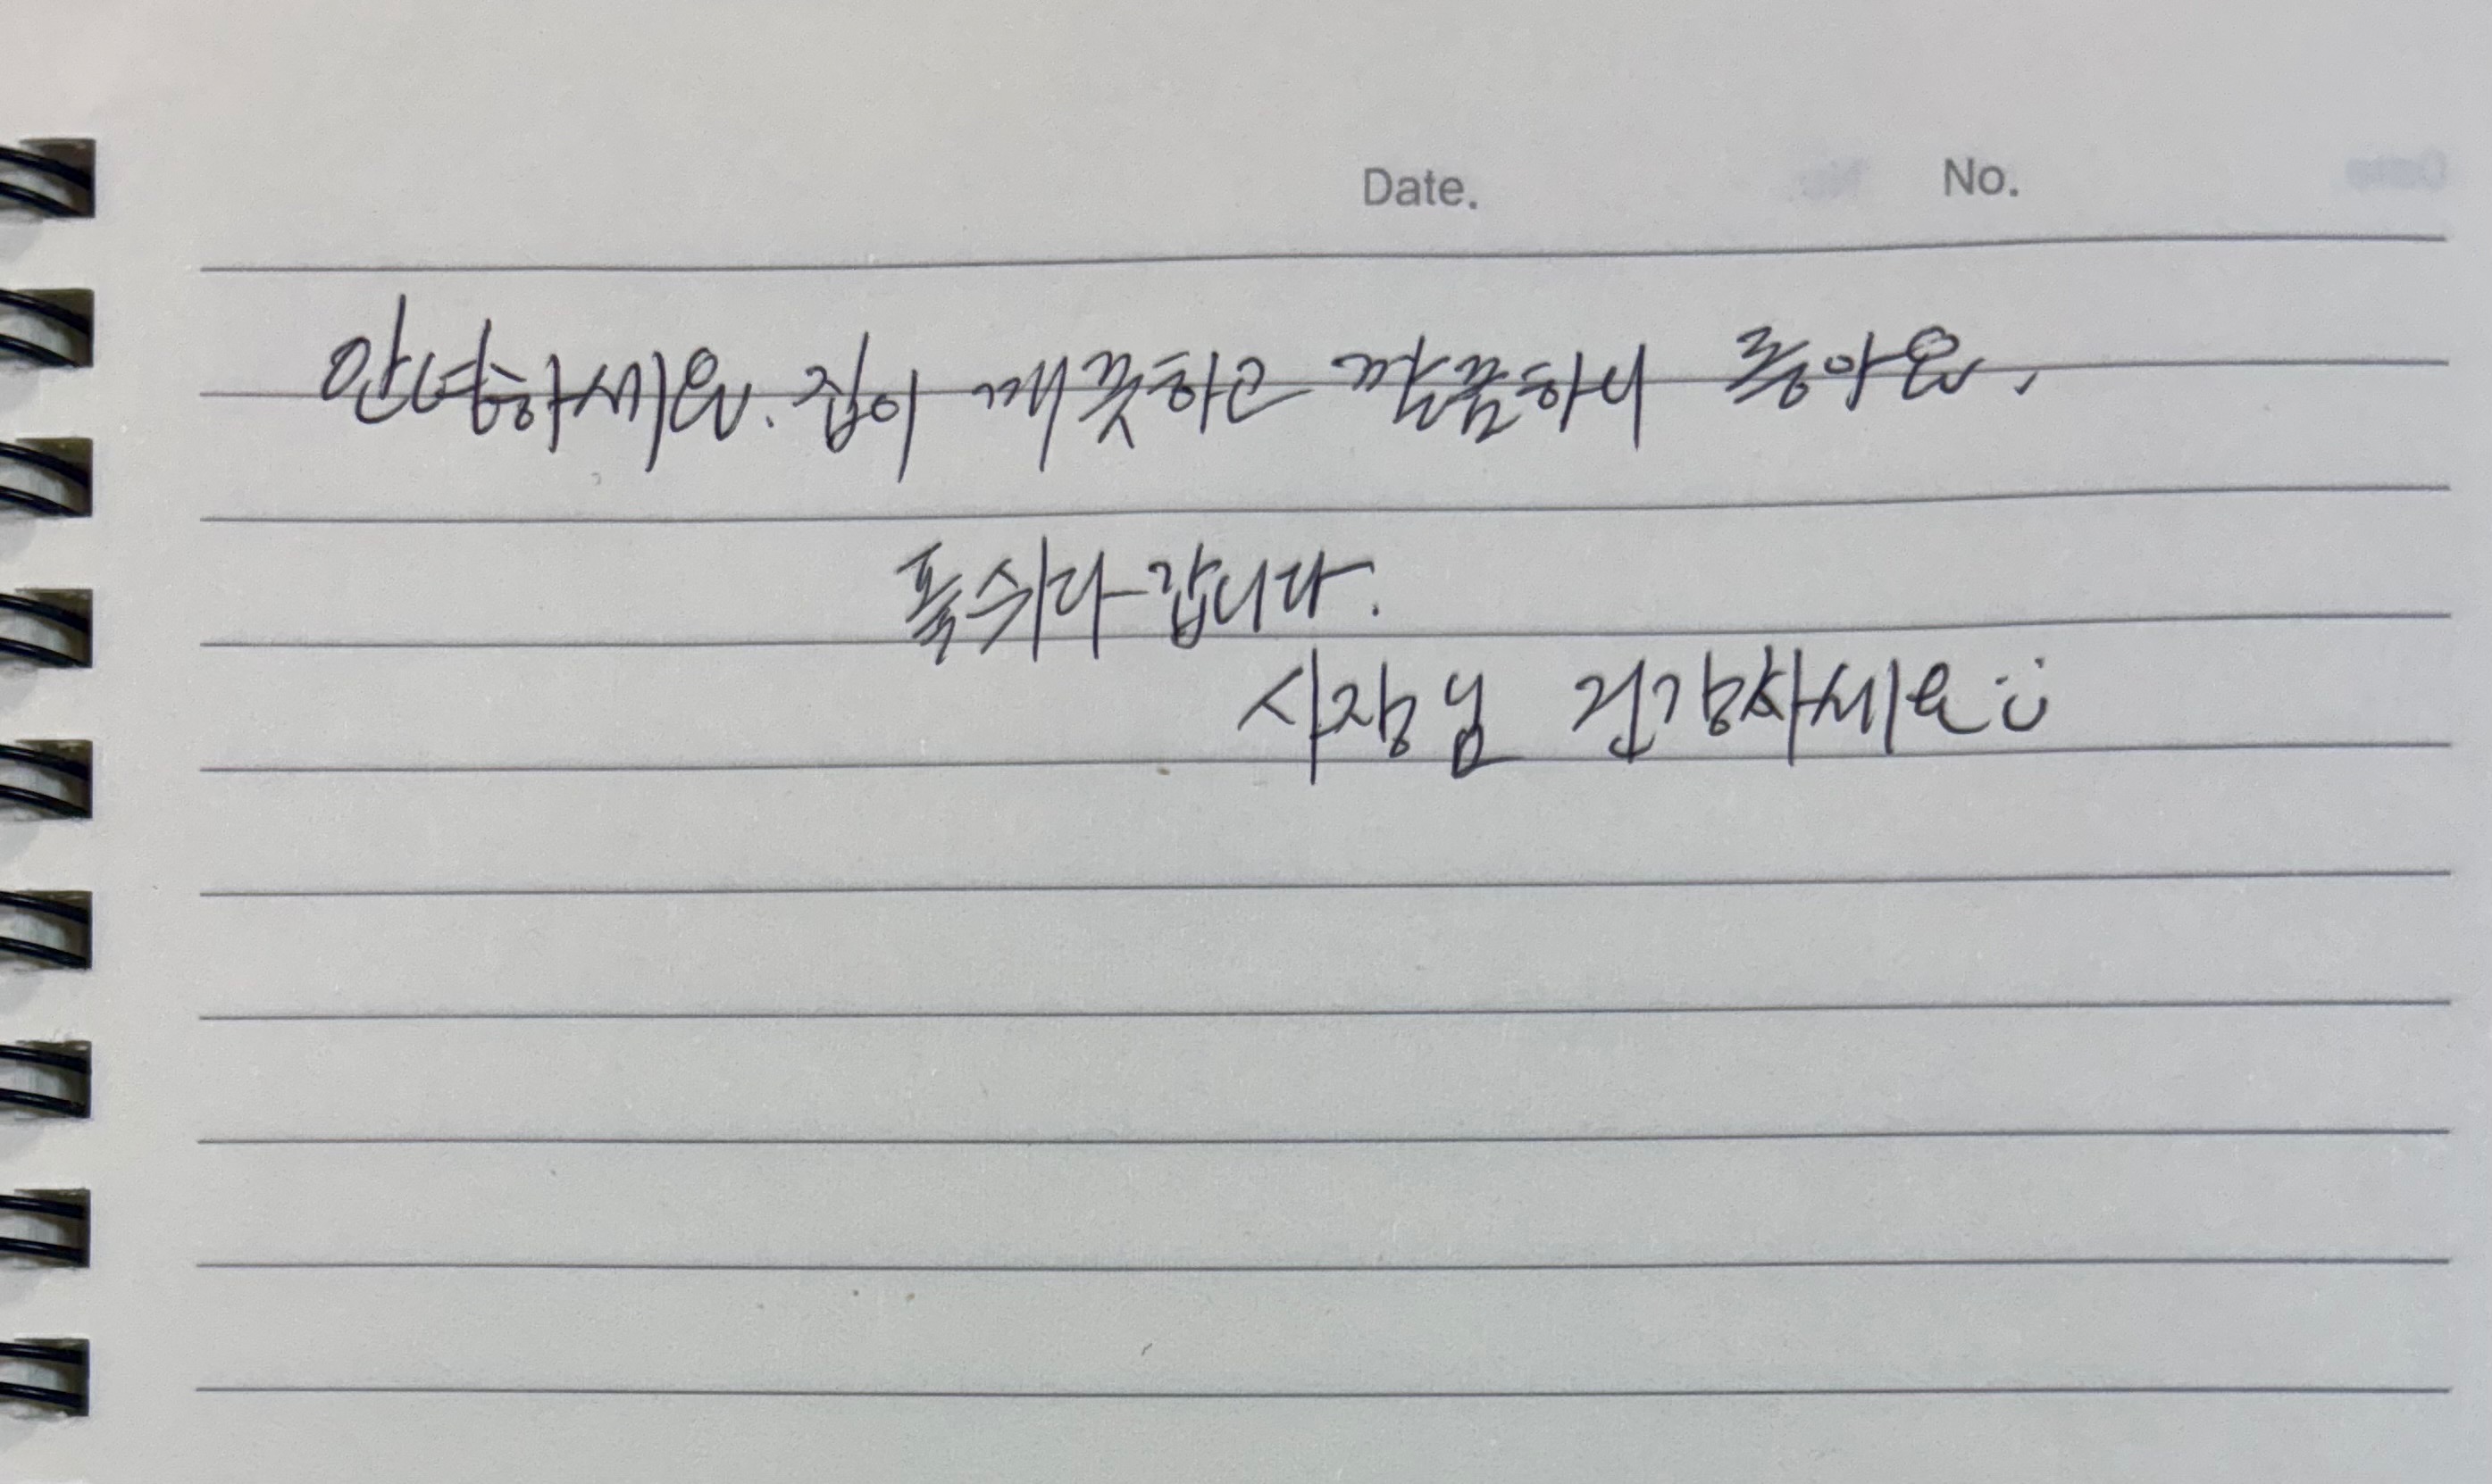 Date. No.
안녕하세요. 집이 깨끗하고 깔끔하니 좋아요.
푹쉬다갑니다.
사장님 건강하세요:)